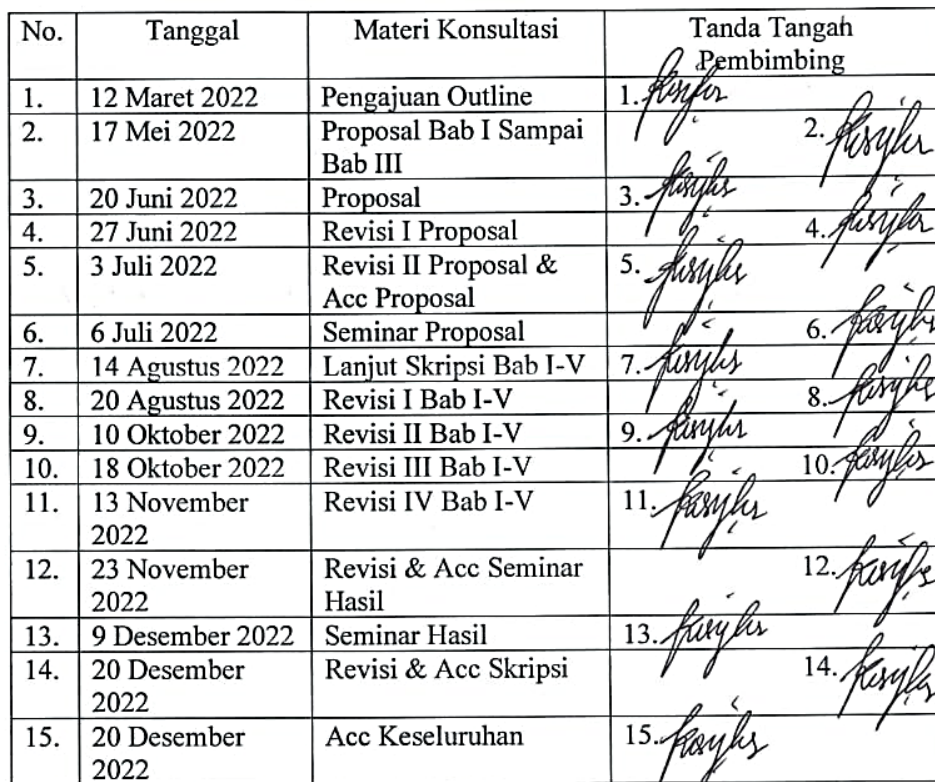 No. Tanggal Materi Konsultasi Tanda Tangah
Pembimbing
1. 12 Maret 2022 Pengajuan Outline 1.
2. 17 Mei 2022 Proposal Bab I Sampai 2.
Bab III
3. 20 Juni 2022 Proposal 3.
4. 27 Juni 2022 Revisi I Proposal 4.
5. 3 Juli 2022 Revisi II Proposal & 5.
Acc Proposal
6. 6 Juli 2022 Seminar Proposal 6.
7. 14 Agustus 2022 Lanjut Skripsi Bab I-V 7.
8. 20 Agustus 2022 Revisi I Bab I-V 8.
9. 10 Oktober 2022 Revisi II Bab I-V 9.
10. 18 Oktober 2022 Revisi III Bab I-V 10.
11. 13 November Revisi IV Bab I-V 11.
2022
12. 23 November Revisi & Acc Seminar 12.
2022 Hasil
13. 9 Desember 2022 Seminar Hasil 13.
14. 20 Desember Revisi & Acc Skripsi 14.
2022
15. 20 Desember Acc Keseluruhan 15.
2022